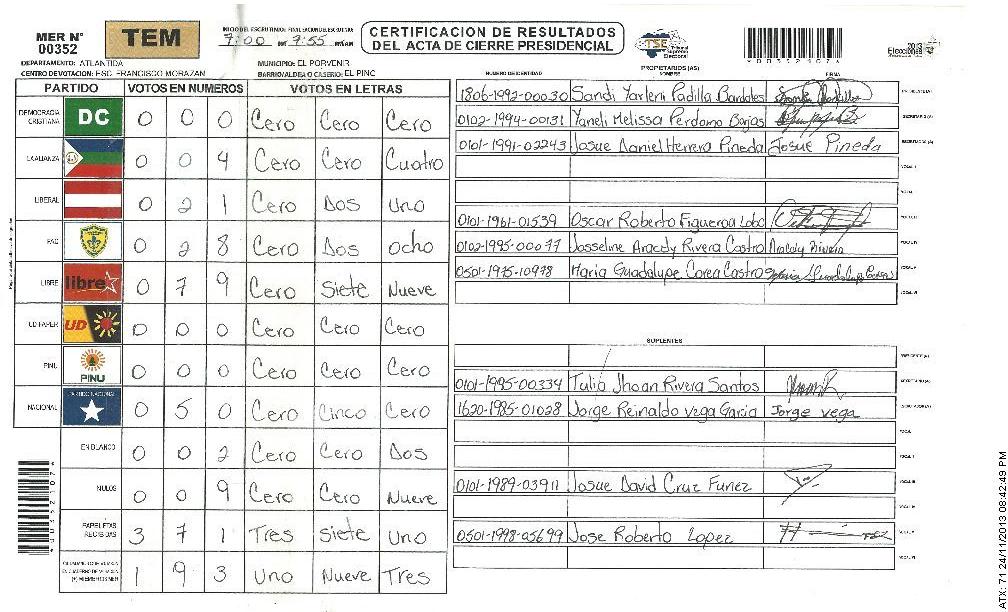 MER N° 00352
TEM
7:00 7:55
CERTIFICACION DE RESULTADOS
DEL ACTA DE CIERRE PRESIDENCIAL
TSE Tribunal Supremo Electoral
DEPARTAMENTO: ATLANTIDA
MUNICIPIO: EL PORVENIR
CENTRO DE VOTACION: ESC. FRANCISCO MORAZAN
BARRIO/ALDEA O CASERIO: EL PINO
PARTIDO VOTOS EN NUMEROS VOTOS EN LETRAS
DEMOCRACIA CRISTIANA DC 0 0 0 Cero Cero Cero
LA ALIANZA 0 0 4 Cero Cero Cuatro
LIBERAL 0 2 1 Cero Dos Uno
PAC 0 2 8 Cero Dos ocho
LIBRE libre 0 7 9 Cero Siete Nueve
UD FAPER UD 0 0 0 Cero Cero Cero
PINU PINU 0 0 0 Cero Cero Cero
NACIONAL PARTIDO NACIONAL 0 5 0 Cero Cinco Cero
EN BLANCO 0 0 2 Cero Cero Dos
NULOS 0 0 9 Cero Cero Nueve
PAPELETAS RECIBIDAS 3 7 1 Tres Siete Uno
1 9 3 Uno Nueve Tres
*00352107*
PROPIETARIOS (AS)
NUMERO DE IDENTIDAD NOMBRE FIRMA
1806-1992-00030 Sandi Yarleni Padilla Bardales
0102-1994-00131 Yaneli Melissa Perdomo Borjas
0101-1991-02243 Josue Daniel Herrera Pineda Josué Pineda
0101-1961-01539 Oscar Roberto Figueroa Lobo
0102-1995-00077 Josseline Aracely Rivera Castro Aracely Rivera
0501-1975-10978 Maria Guadalupe Corea Castro
SUPLENTES
0101-1995-00334 Tulio Jhoan Rivera Santos
1620-1985-01028 Jorge Reinaldo Vega Garcia Jorge vega
0101-1989-03911 Josue David Cruz Funez
0501-1998-05699 Jose Roberto Lopez
*00352107*
ATX: 71 24/11/2013 08:42:49 PM